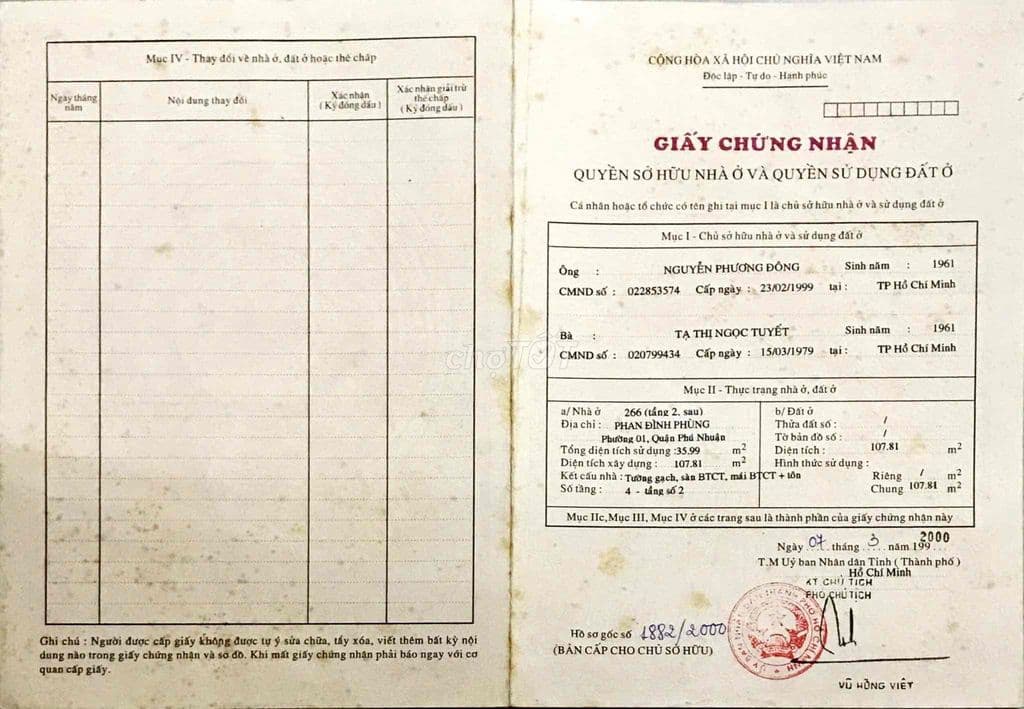 Mục IV - Thay đổi về nhà ở, đất ở hoặc thế chấp
Ngày tháng năm
Nội dung thay đổi
Xác nhận
( Ký đóng dấu )
Xác nhận giải trừ
thế chấp
( Ký đóng dấu )
Ghi chú : Người được cấp giấy không được tự ý sửa chữa, tẩy xóa, viết thêm bất kỳ nội
dung nào trong giấy chứng nhận và sơ đồ. Khi mất giấy chứng nhận phải báo ngay với cơ
quan cấp giấy.
CỘNG HÒA XÃ HỘI CHỦ NGHĨA VIỆT NAM
Độc lập - Tự do - Hạnh phúc
GIẤY CHỨNG NHẬN
QUYỀN SỞ HỮU NHÀ Ở VÀ QUYỀN SỬ DỤNG ĐẤT Ở
Cá nhân hoặc tổ chức có tên ghi tại mục I là chủ sở hữu nhà ở và sử dụng đất ở
Mục I - Chủ sở hữu nhà ở và sử dụng đất ở
Ông : NGUYỄN PHƯƠNG ĐÔNG Sinh năm : 1961
CMND số : 022853574 Cấp ngày : 23/02/1999 tại : TP Hồ Chí Minh
Bà : TẠ THỊ NGỌC TUYẾT Sinh năm : 1961
CMND số : 020799434 Cấp ngày : 15/03/1979 tại : TP Hồ Chí Minh
chợTỐT
Mục II - Thực trạng nhà ở, đất ở
a/ Nhà ở 266 (tầng 2, sau)
Địa chỉ : PHAN ĐÌNH PHÙNG
Phường 01, Quận Phú Nhuận
Tổng diện tích sử dụng : 35.99 m2
Diện tích xây dựng : 107.81 m2
Kết cấu nhà : Tường gạch, sàn BTCT, mái BTCT + tôn
Số tầng : 4 - tầng số 2
b/ Đất ở
Thửa đất số : /
Tờ bản đồ số : /
Diện tích : 107.81 m2
Hình thức sử dụng :
Riêng / m2
Chung 107.81 m2
Mục IIc, Mục III, Mục IV ở các trang sau là thành phần của giấy chứng nhận này
Ngày 07 tháng 3 năm 199 2000
T.M Uỷ ban Nhân dân Tỉnh ( Thành phố )
Hồ Chí Minh
KT CHỦ TỊCH
PHÓ CHỦ TỊCH
Hồ sơ gốc số 1882/2000
(BẢN CẤP CHO CHỦ SỞ HỮU)
VŨ HÙNG VIỆT